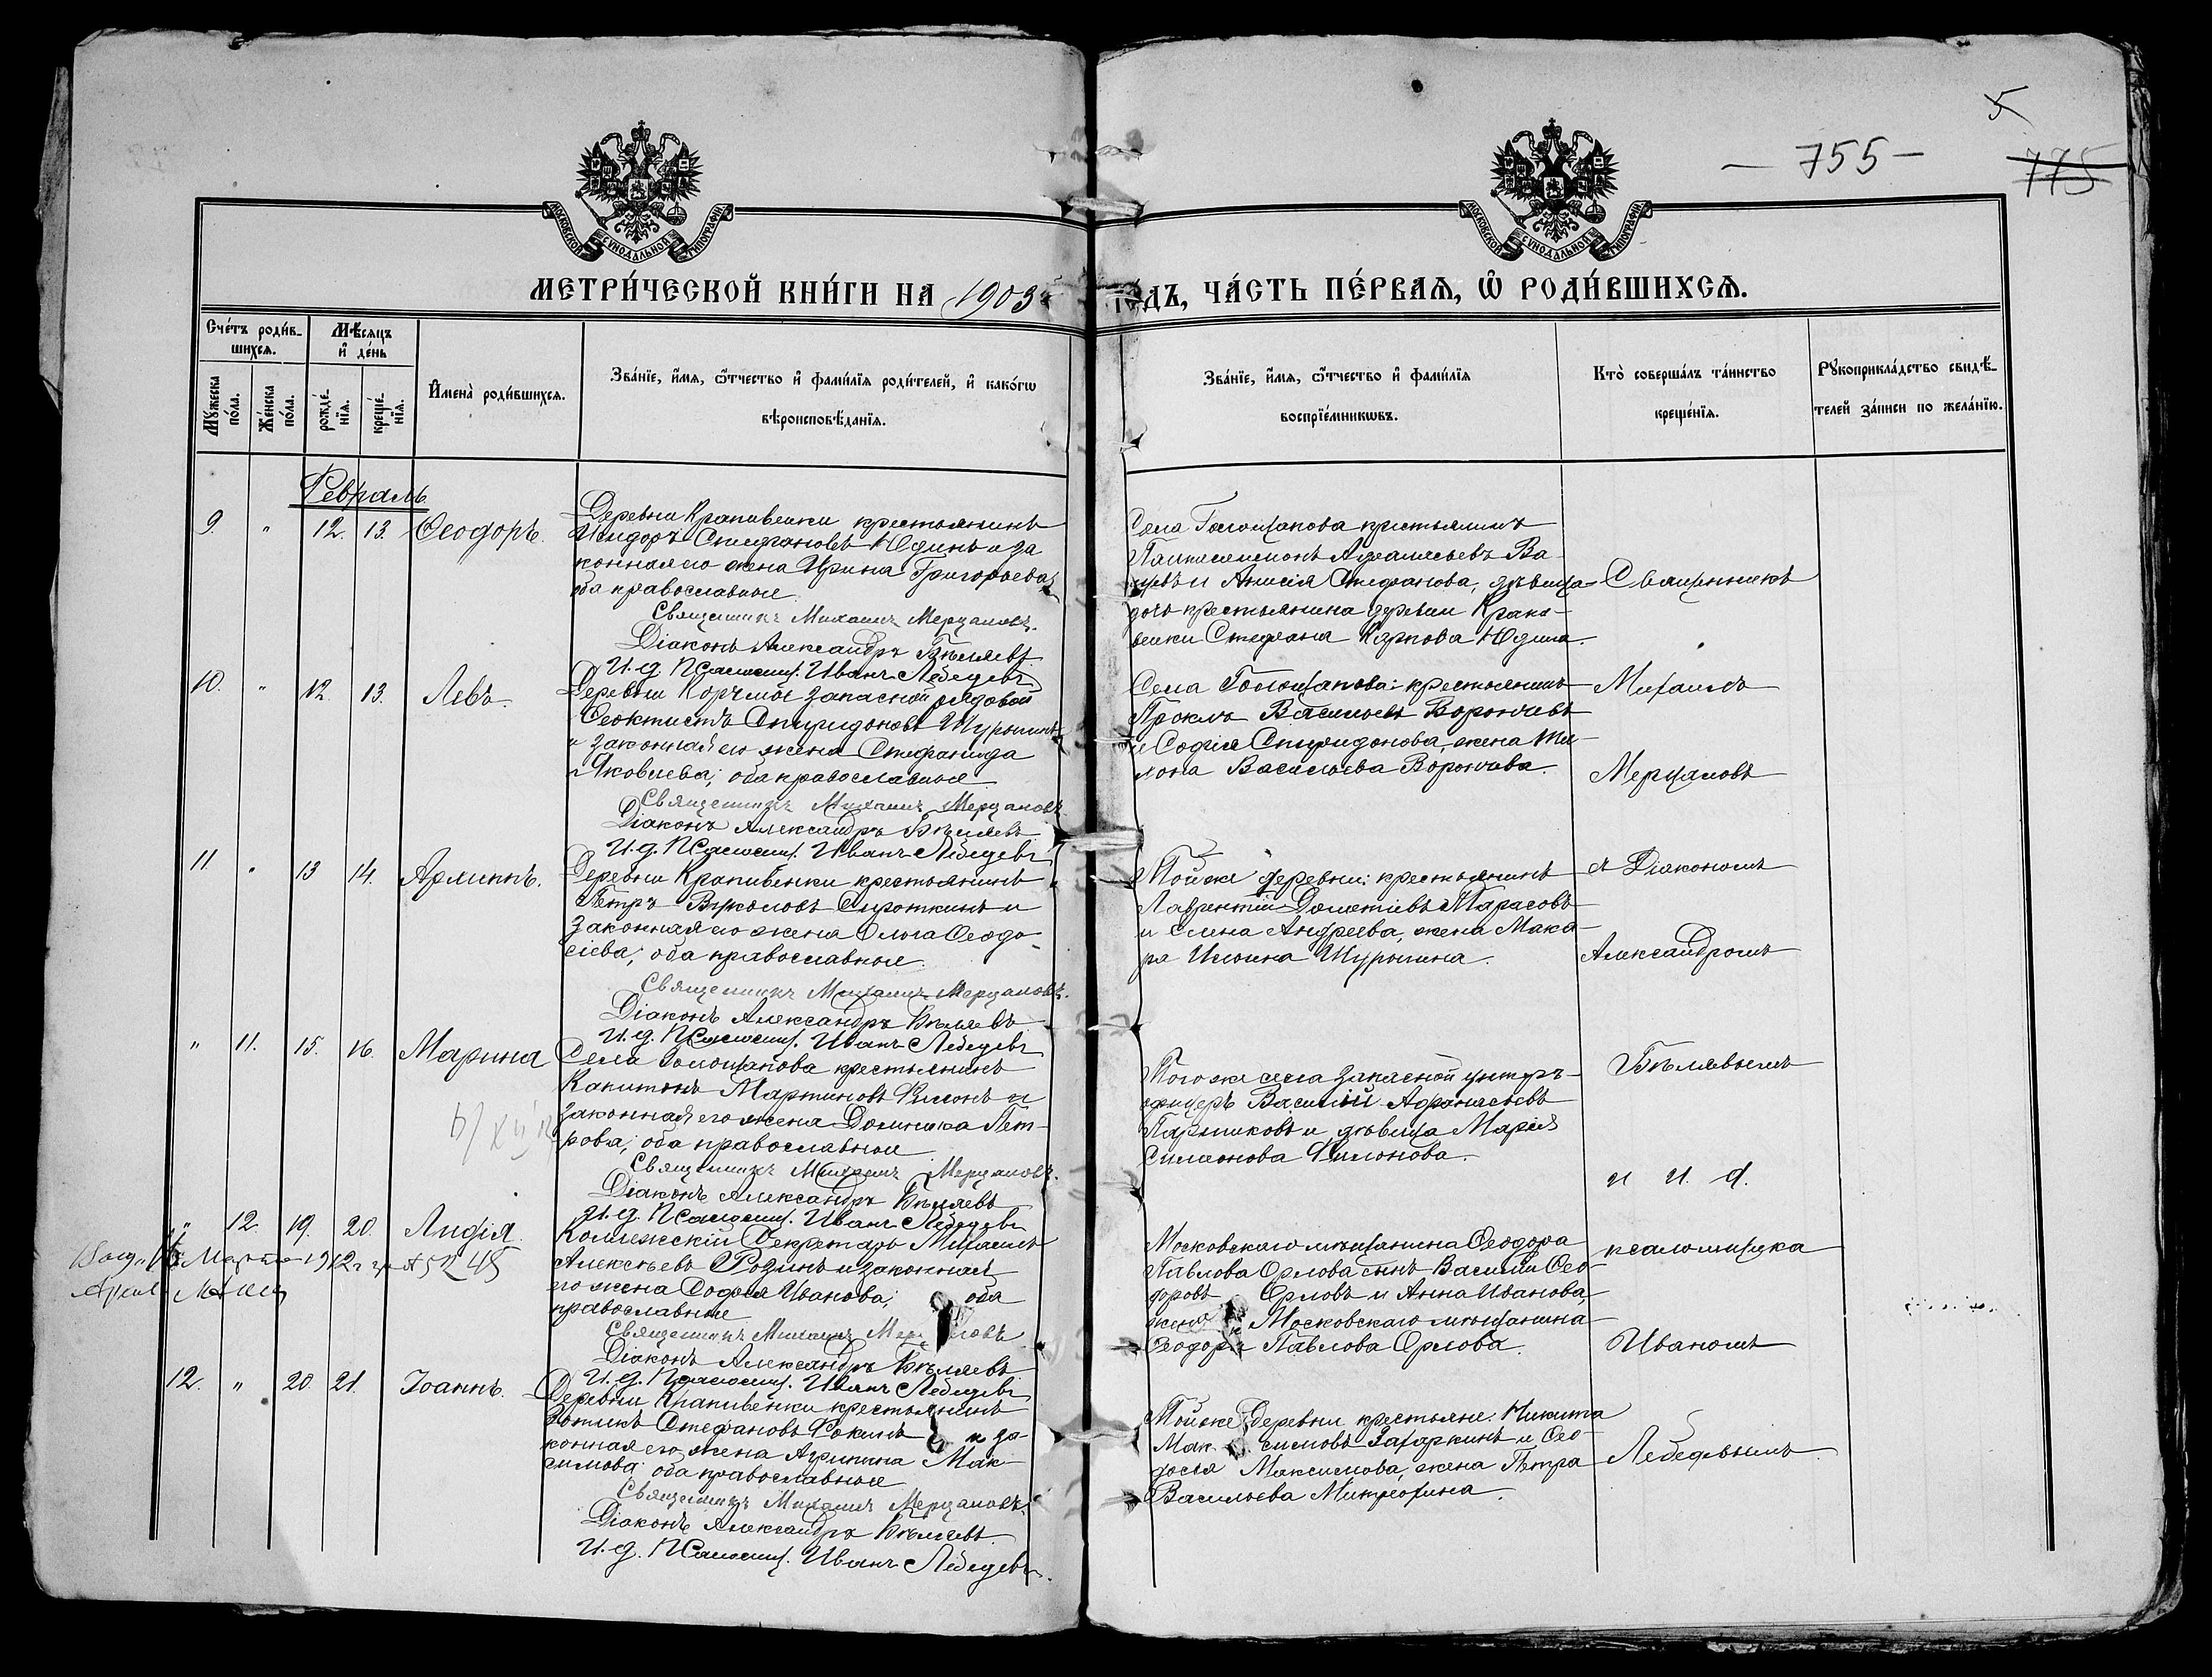 5
— 755 —
775
МОСКОВСКОЙ СУНОДАЛЬНОЙ ТИПОГРАФІИ
МОСКОВСКОЙ СУНОДАЛЬНОЙ ТИПОГРАФІИ
МЕТРИ́ЧЕСКОЙ КНИ́ГИ НА 1903й ГОДЪ, ЧА́СТЬ ПЕ́РВАѦ, Ѽ РОДИ́ВШИХСѦ.
Сче́тъ роди́в-
шихсѧ.
Мꙋжеска по́ла.
Же́нска по́ла.
Мѣ́сѧцъ
и҆ де́нь
рожде́-
нїѧ.
креще́-
нїѧ.
И҆мена̀ роди́вшихсѧ.
Зва́нїе, и҆́мѧ, ѻ҆́тчество и҆ фами́лїѧ роди́телей, и҆ како́гѡ
вѣроисповѣ́данїѧ.
Зва́нїе, и҆́мѧ, ѻ҆́тчество и҆ фами́лїѧ
воспрїе́мникѡвъ.
Кто̀ соверша́лъ та́инство
креще́нїѧ.
Рꙋкоприкла́дство свидѣ́-
телей за́писи по жела́нїю.
Февраль
9. " 12. 13. Ѳеодоръ.
Деревни Крапивенки крестьянинъ
Исидоръ Стефановъ Юдинъ и за
конная его жена Ирина Григорьева,
оба православные
Священникъ Михаилъ Мерцаловъ.
Діаконъ Александръ Бѣляевъ
И. д. Псаломщ. Иванъ Лебедевъ
Села Голощапова крестьянинъ
Пантелеимонъ Аѳанасьевъ
и Анисія Стефанова, дѣвица
дочь крестьянина деревни Крапи-
венки Стефана Карпова Юдина.
10. " 12. 13. Левъ.
Деревни запасной рядовой
Ѳеоктистъ Спиридоновъ Шурыгинъ
и законная его жена Стефанида
Яковлева; оба православные
Священникъ Михаилъ Мерцаловъ
Діаконъ Александръ Бѣляевъ
И. д. Псаломщ. Иванъ Лебедевъ
Села Голощапова: крестьянинъ
Проклъ Васильевъ Ворончевъ
и Софія Спиридонова, жена
Васильева Ворончева.
11. " 13 14. Армипъ.
Деревни Крапивенки крестьянинъ
Петръ Вуколовъ Сироткинъ и
законная его жена Ольга Ѳеодо-
сіева; оба православные.
Священникъ Михаилъ Мерцаловъ.
Діаконъ Александръ Бѣляевъ
И. д. Псаломщ. Иванъ Лебедевъ
Той же деревни: крестьянинъ
Лаврентій Дометіевъ Тарасовъ
и Елена Андреева, жена Мака-
ра Ильина Шурыгина.
" 11. 15. 16. Марина
Села Голощапова крестьянинъ
Капитонъ Мартиновъ и
законная его жена Домника Пет-
рова; оба православные
Священникъ Михаилъ Мерцаловъ.
Діаконъ Александръ Бѣляевъ
И. д. Псаломщ. Иванъ Лебедевъ
Того же села запасной унтеръ-
офицеръ Василій Аѳанасьевъ
Паршиковъ и дѣвица Марія
Симеонова Филонова.
" 12. 19. 20. Лидія.
Марта 1912 г. № 48
Коллежскій Секретарь Михаилъ
Алексѣевъ Розинъ и законная
его жена Софія Иванова; оба
православные
Священникъ Михаилъ Мерцаловъ
Діаконъ Александръ Бѣляевъ
И. д. Псаломщ. Иванъ Лебедевъ
Московскаго мѣщанина Ѳеодора
Павлова Орлова сынъ Василій Ѳео-
доровъ Орловъ и Анна Иванова,
жена Московскаго мѣщанина
Ѳеодора Павлова Орлова.
12. " 20. 21. Іоаннъ.
Деревни Крапивенки крестьянинъ
Зотикъ Стефановъ Фокинъ и за-
конная его жена Агрипина Мак-
симова; оба православные
Священникъ Михаилъ Мерцаловъ
Діаконъ Александръ Бѣляевъ.
И. д. Псаломщ. Иванъ Лебедевъ.
Той же деревни крестьяне: Никита
Максимовъ Захаркинъ и Ѳео-
досія Максимова, жена Петра
Васильева Митрофина.
Священникъ
Михаилъ
Мерцаловъ
съ Діакономъ
Александромъ
Бѣляевымъ
и и. д.
псаломщика
Иваномъ
Лебедевымъ.